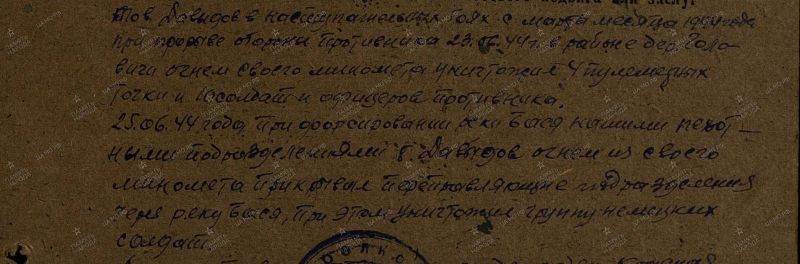 Тов Давыдов в наступательных боях с марта месяца 1944 года
при прорыве обороны противника 23.06.44 г. в районе дер. Голо-
вичи огнем своего миномета уничтожил 4 пулеметных
точки и солдат и офицеров противника.
25.06.44 года, при форсировании реки Бася нашими пехот-
ными подразделениями т. Давыдов огнем из своего
миномета прикрывал переправляющие подразделения
через реку Бася, при этом уничтожил группу немецких
солдат.